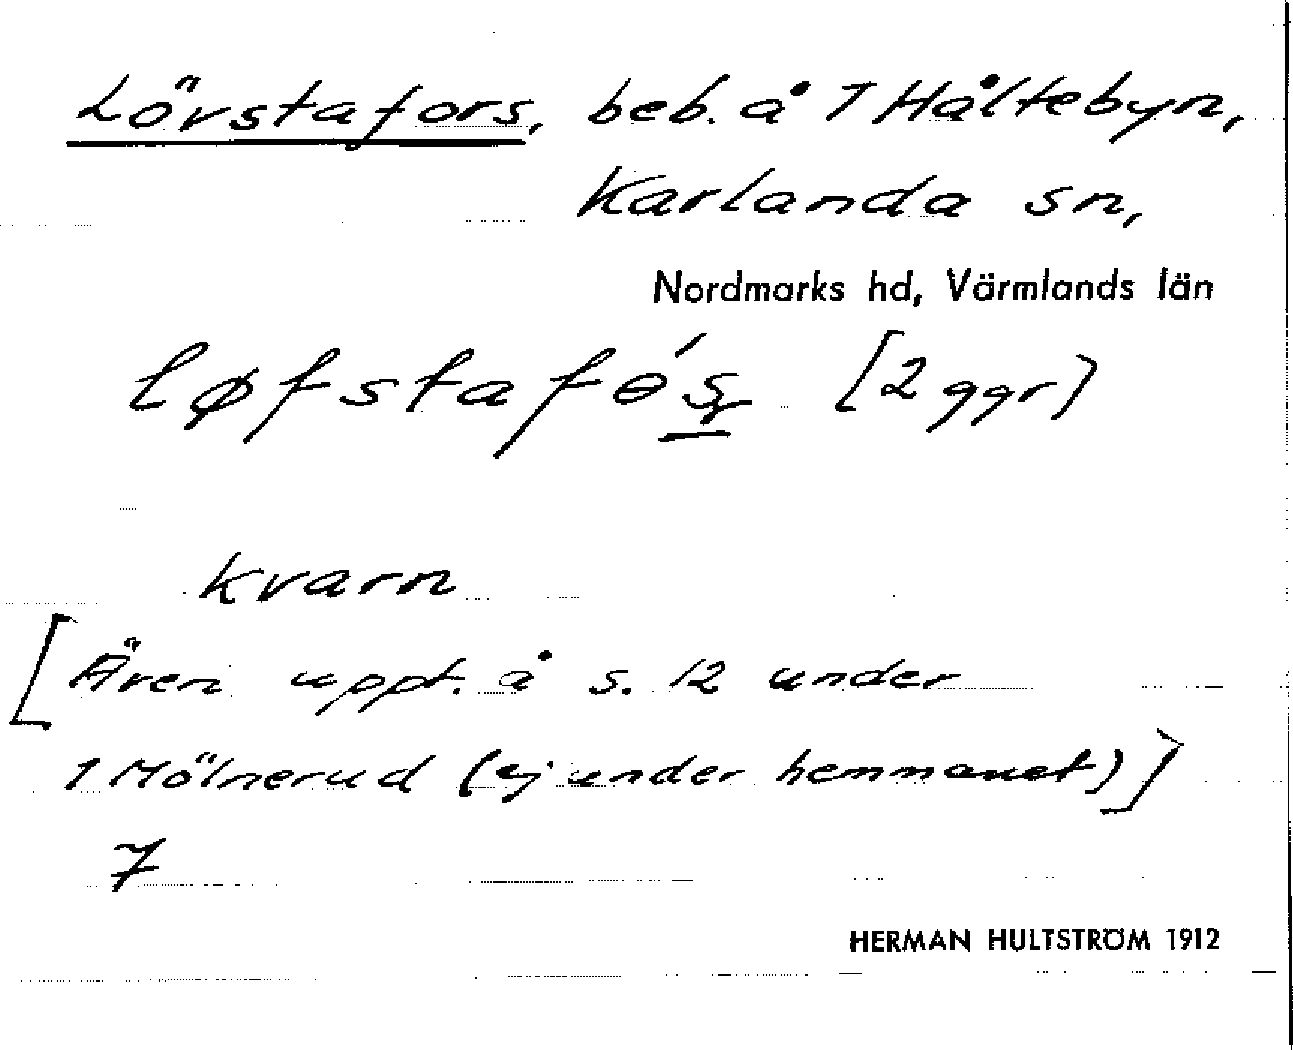 Lövstafors, beb. å 1 Håltebyn,
Karlanda sn,
Nordmarks hd, Värmlands län
løfstafós [2 ggr]
kvarn
[Även uppt. å s. 12 under
1 Mölnerud (ej under hemmanet)]
7
HERMAN HULTSTRÖM 1912